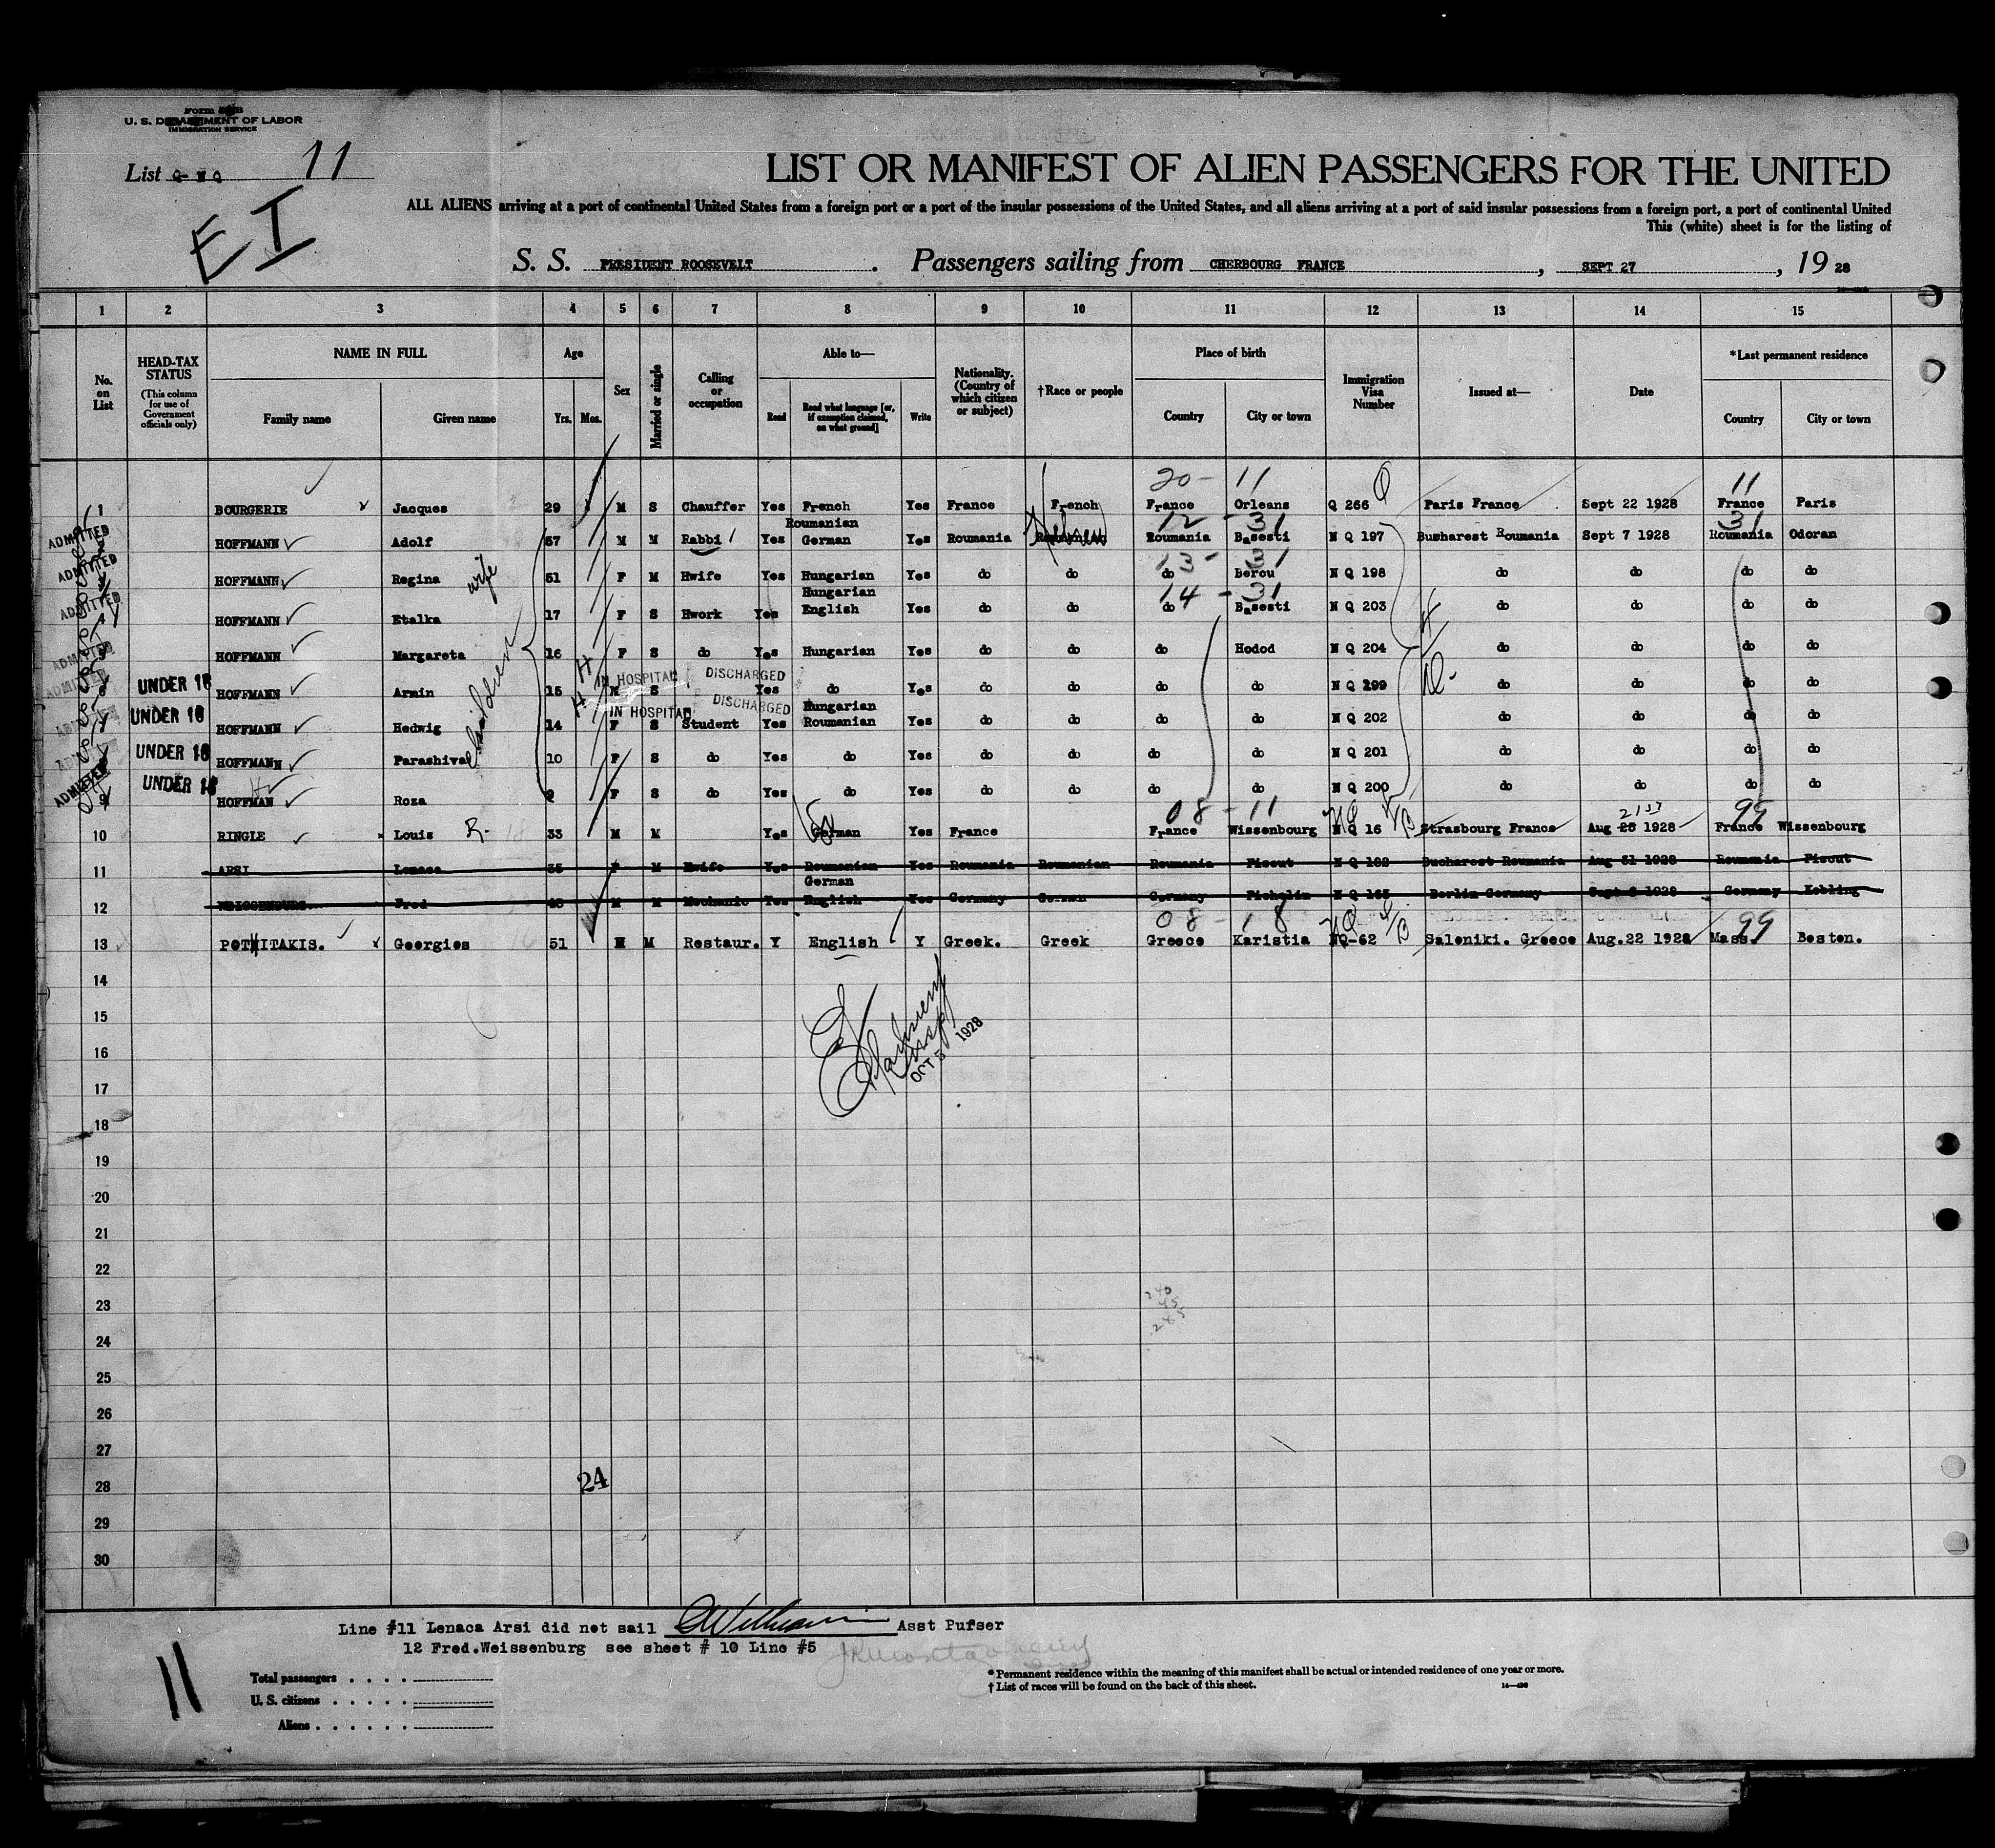 U. S. DEPARTMENT OF LABOR
IMMIGRATION SERVICE
List Q-NQ 11
EI
LIST OR MANIFEST OF ALIEN PASSENGERS FOR THE UNITED
ALL ALIENS arriving at a port of continental United States from a foreign port or a port of the insular possessions of the United States, and all aliens arriving at a port of said insular possessions from a foreign port, a port of continental United
This (white) sheet is for the listing of
S. S. PRESIDENT ROOSEVELT . Passengers sailing from CHERBOURG FRANCE , SEPT 27 , 19 28
1 2 3 4 5 6 7 8 9 10 11 12 13 14 15
No. on List
HEAD-TAX STATUS (This column for use of Government officials only)
NAME IN FULL
Family name Given name
Age
Yrs. Mos.
Sex
Married or single
Calling or occupation
Able to—
Read Read what language [or, if exemption claimed, on what ground] Write
Nationality. (Country of which citizen or subject)
†Race or people
Place of birth
Country City or town
Immigration Visa Number
Issued at—
Date
*Last permanent residence
Country City or town
20- 11 11
1 BOURGERIE Jacques 29 M S Chauffer Yes French Yes France French France Orleans Q 266 Q Paris France Sept 22 1928 France Paris
Roumanian 12 - 31 31
ADMITTED HOFFMANN Adolf 57 M M Rabbi Yes German Yes Roumania Hebrew Roumania Basesti N Q 197 Bucharest Roumania Sept 7 1928 Roumania Odoran
13 - 31
ADMITTED HOFFMANN Regina wife 51 F M Hwife Yes Hungarian Yes do do do Bercu N Q 198 do do do do
Hungarian 14 - 31
ADMITTED 4 HOFFMANN Etalka 17 F S Hwork Yes English Yes do do do Basesti N Q 203 do do do do
ADMITTED 5 HOFFMANN Margareta 16 F S do Yes Hungarian Yes do do do Hodod N Q 204 do do do do
H IN HOSPITAL DISCHARGED
ADMITTED 6 UNDER 16 HOFFMANN Armin 15 M S Yes do Yes do do do do N Q 299 do do do do
H IN HOSPITAL DISCHARGED Hungarian
7 UNDER 16 HOFFMANN Hedwig 14 F S Student Yes Roumanian Yes do do do do N Q 202 do do do do
children
UNDER 16 HOFFMANN Parashiva 10 F S do Yes do Yes do do do do N Q 201 do do do do
ADMITTED 9 UNDER 16 HOFFMAN Roza 9 F S do Yes do Yes do do do do N Q 200 do do do do
08 - 11 99
10 RINGLE Louis R- 33 M M Yes German Yes France France Wissenbourg N Q 16 Strasbourg France Aug 1928 France Wissenbourg
11 ARSI Lenaca 35 F M Hwife Yes Roumanian Yes Roumania Roumanian Roumania Pisout N Q 182 Bucharest Roumania Aug 31 1928 Roumania Pisout
German
12 WEISSENBURG Fred M M Mechanic Yes English Yes Germany German Germany N Q 165 Berlin Germany Sept 1928 Germany
08 - 18 99
13 POTHITAKIS. Georgios 51 M M Restaur. Y English Y Greek. Greek Greece Karistia NQ-62 Saleniki. Greece Aug.22 1928 Mass Boston.
14
15
OCT 5 1928
16
17
18
19
20
21
22
23
240
45
285
24
25
26
27
28 24
29
30
Line #11 Lenaca Arsi did not sail Asst Purser
12 Fred.Weissenburg see sheet # 10 Line #5
11
Total passengers . . . .
U. S. citizens . . . . .
Aliens . . . . . .
*Permanent residence within the meaning of this manifest shall be actual or intended residence of one year or more.
†List of races will be found on the back of this sheet.